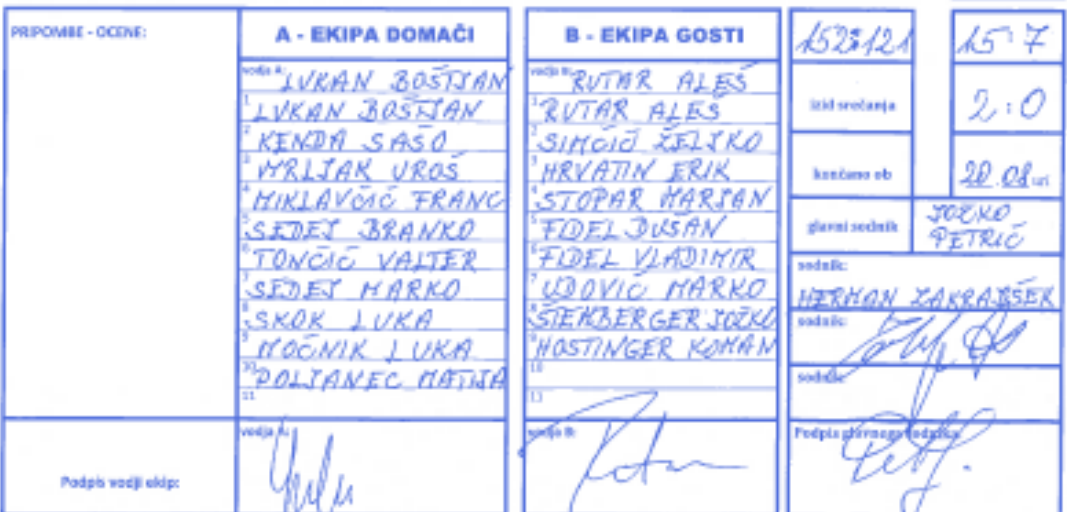 PRIPOMBE - OCENE:
A - EKIPA DOMAČI
vodja A: LUKAN BOŠTJAN
1 LUKAN BOŠTJAN
2 KENDA SAŠO
3 MRLJAK UROŠ
4 MIKLAVČIČ FRANC
5 SEDEJ BRANKO
6 TONČIČ VALTER
7 SEDEJ MARKO
8 SKOK LUKA
9 MOČNIK LUKA
10 POLJANEC MATIJA
11
vodja A:
B - EKIPA GOSTI
vodja B: RUTAR ALEŠ
1 RUTAR ALEŠ
2 SIMČIČ ŽELJKO
3 HRVATIN ERIK
4 STOPAR MARJAN
5 FIDEL DUŠAN
6 FIDEL VLADIMIR
7 UDOVIČ MARKO
8 ŠTEMBERGER JOŽKO
9 HOSTINGER ROMAN
10
11
vodja B:
152:121 15:7
izid srečanja 2:0
končano ob 20.08 uri
glavni sodnik JOŽKO
PETRIČ
sodnik:
HERMAN ZAKRAJŠEK
sodnik:
sodnik:
Podpis glavnega sodnika:
Podpis vodji ekip: